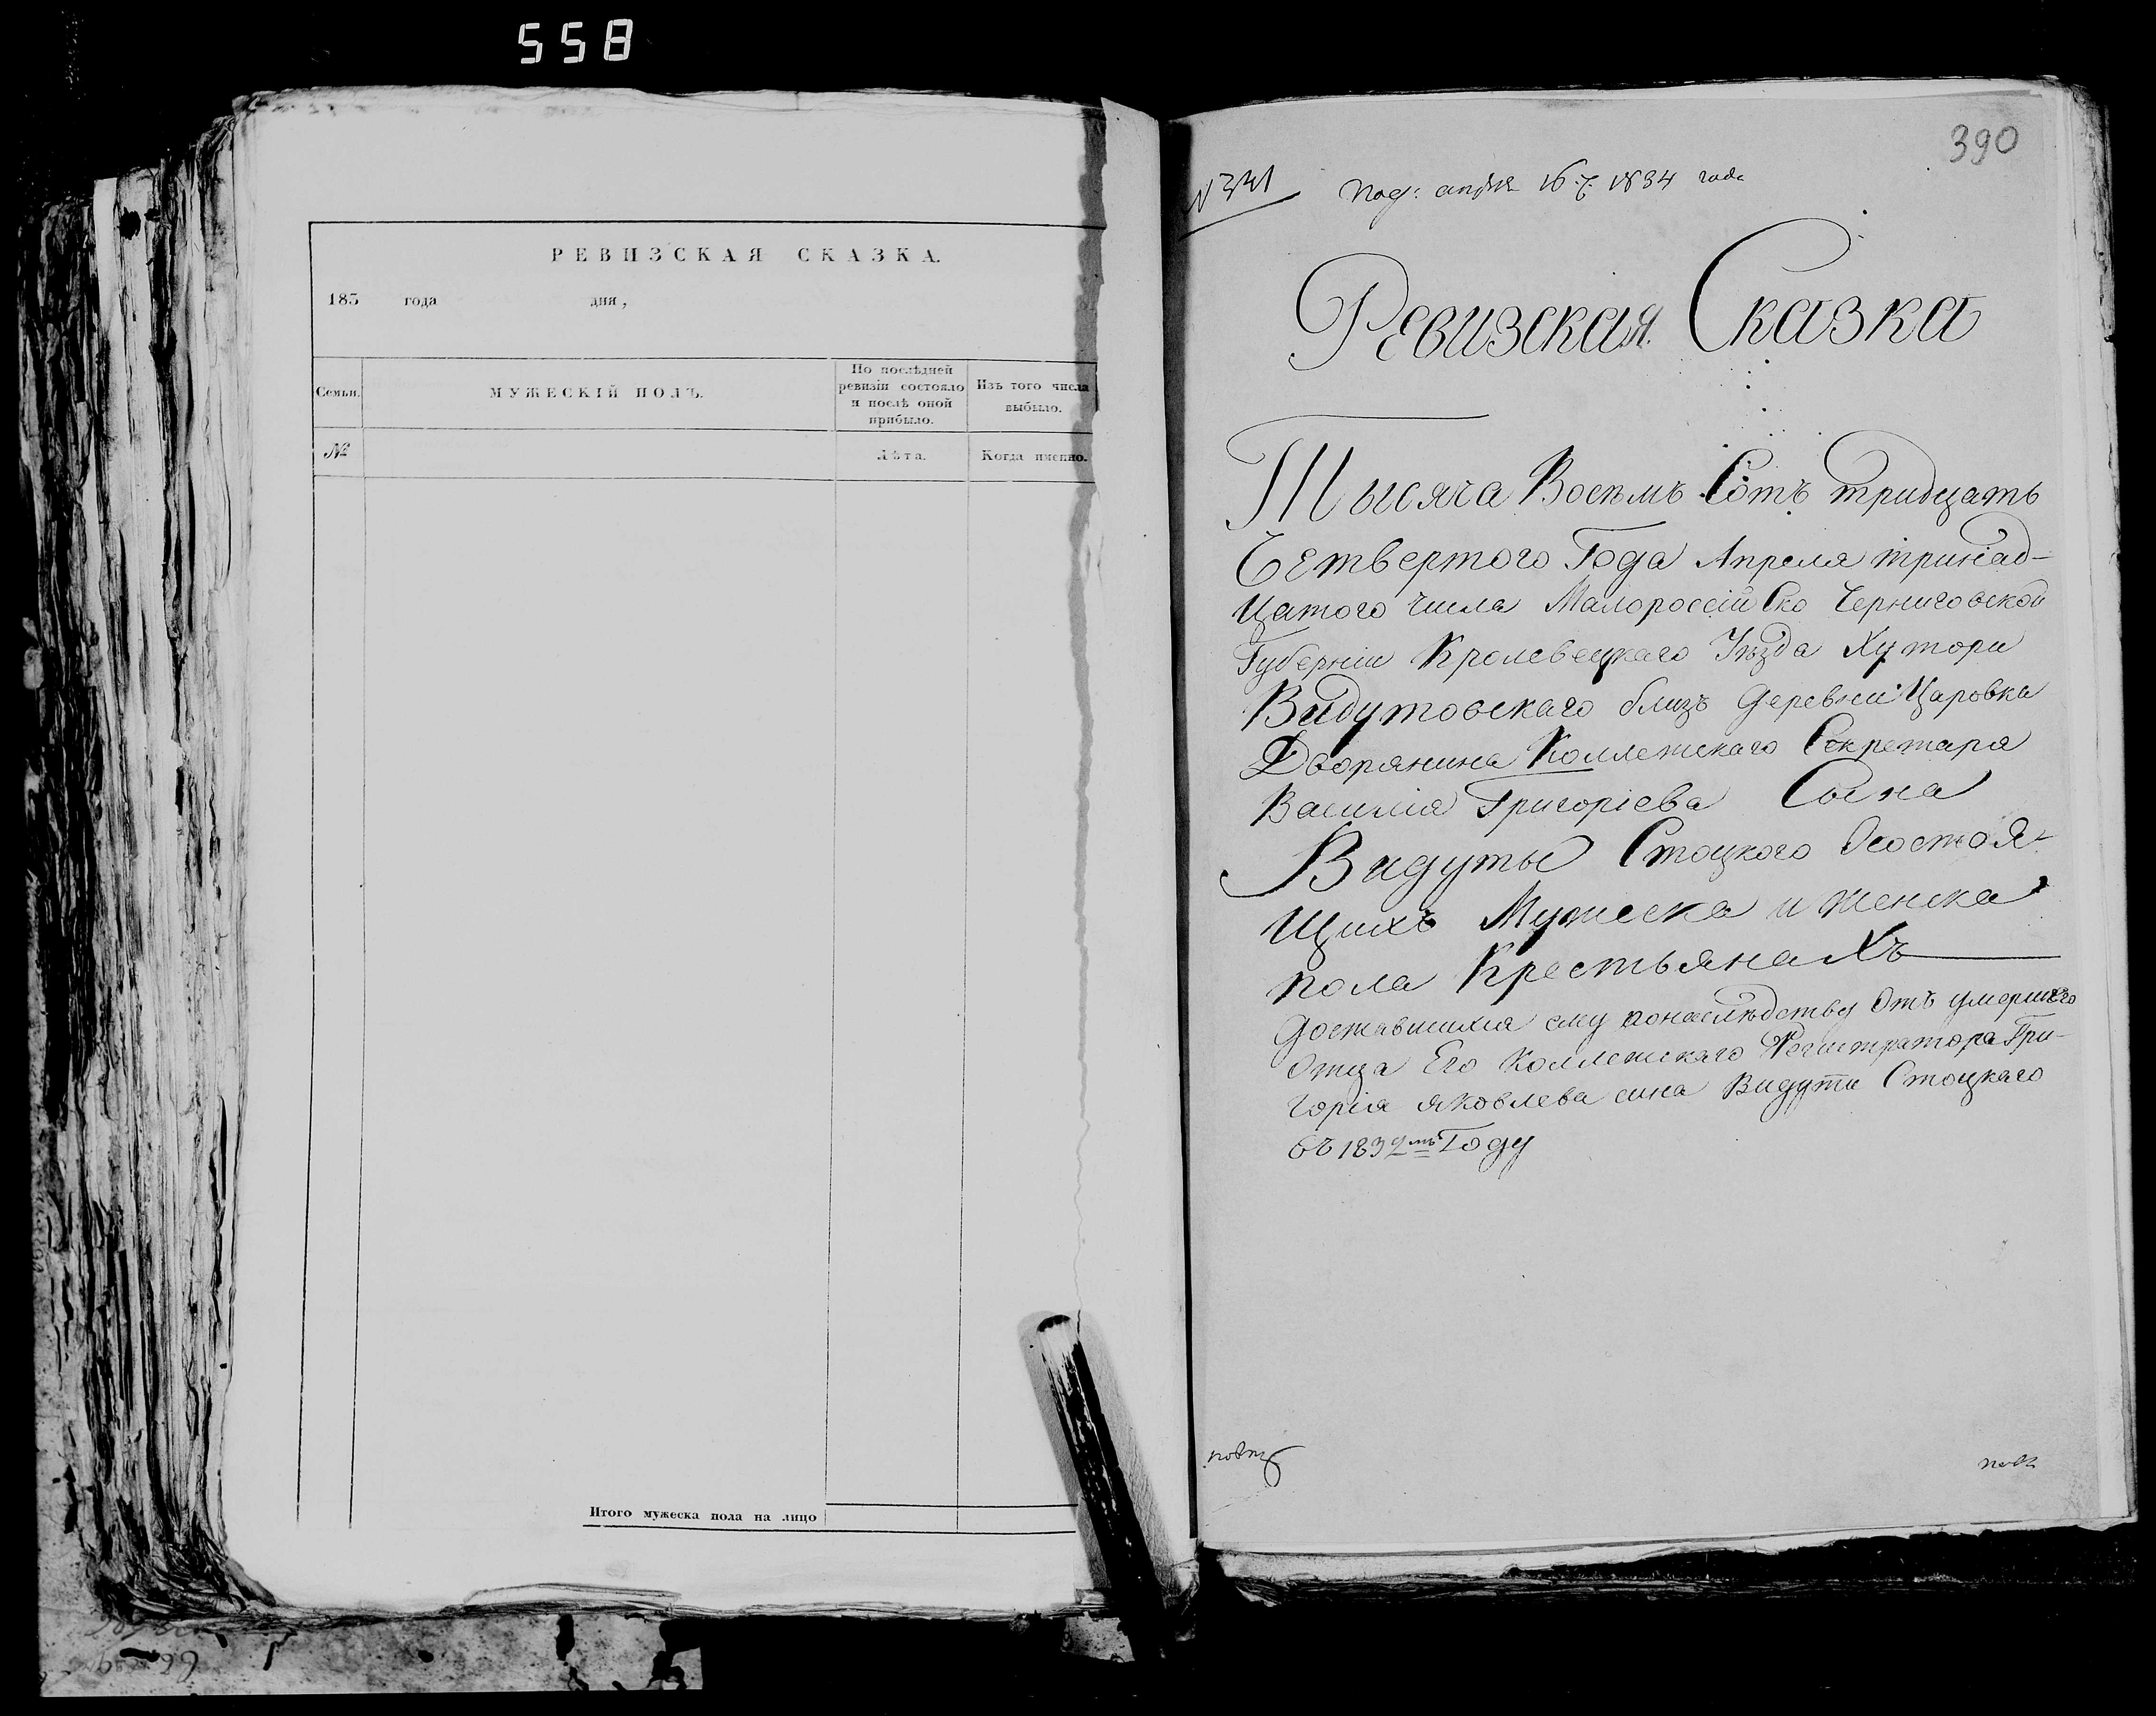 558
РЕВИЗСКАЯ СКАЗКА.
183 года дня,
Семьи.
МУЖЕСКІЙ ПОЛЪ.
По послѣдней
ревизіи состояло
и послѣ оной
прибыло.
Изъ того числа
выбыло.
№
Лѣта.
Когда именно.
Итого мужеска пола на лицо
390
N 341
Под: апреля 16 1834 года
Ревизская Сказка
Тысяча Восемъ Сотъ тридцать
Четвертого Года Апреля тринад-
цатого числа Малороссійско Черниговской
Губерніи Кролевецкаго Уѣзда Хутори
Видутовскаго близъ деревни Царовки
Дворянина Коллежскаго Секретаря
Василія Григоріева Сына
Видуты Стоцкого Осостоя-
щихъ Мужеска и женска
пола Крестьянахъ
доставшихся ему понаслѣдству Отъ умершего
Отца Его Коллежскаго Регистратора Гри-
горія яковлева сина Видути Стоцкаго
въ 1832мъ Году